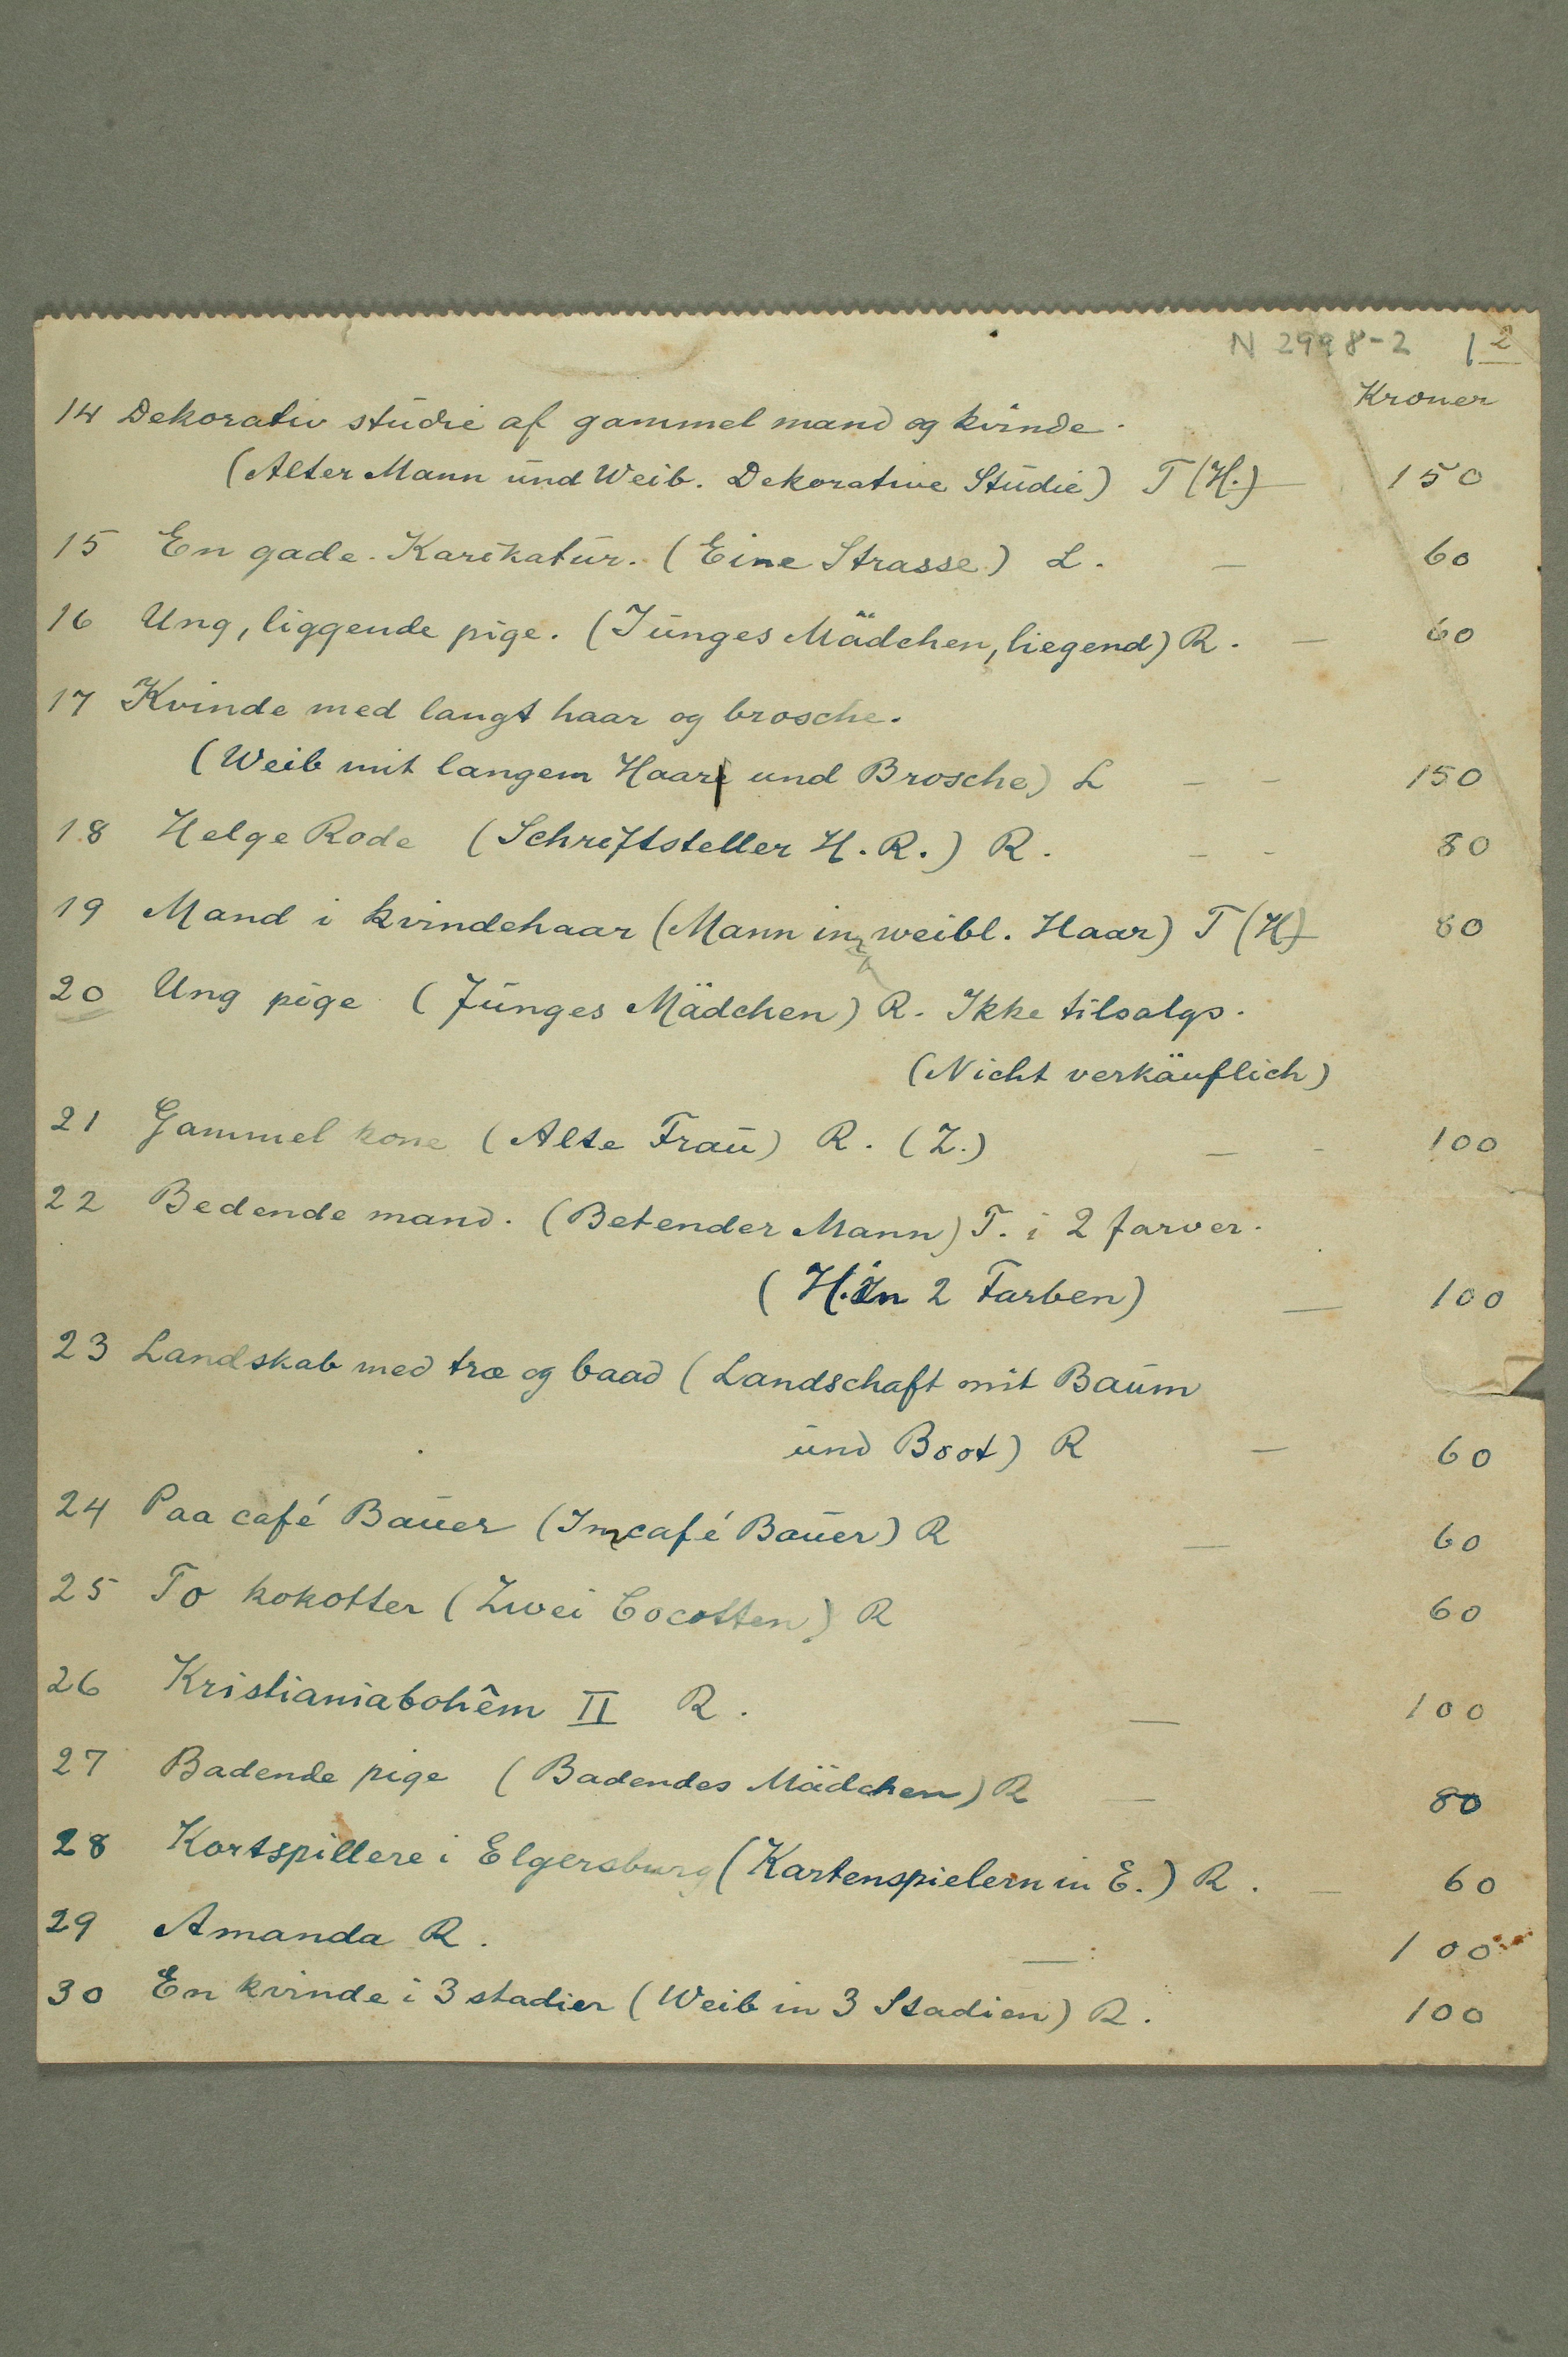 N 2998-2 12
Kroner
14 Dekorativ studie af gammel mand og kvinde.
(Alter Mann und Weib. Dekorative Studie) T (H.) — 150
15 En gade. Karikatur. (Eine Strasse) L. — 60
16 Ung, liggende pige. (Junges Mädchen, liegend) R. — 60
17 Kvinde med langt haar og brosche.
(Weib mit langem Haar und Brosche) L - - 150
18 Helge Rode (Schriftsteller H. R.) R. - - 80
19 Mand i kvindehaar (Mann in weibl. Haar) T (H) 80
20 Ung pige (Junges Mädchen) R. Ikke tilsalgs.
(Nicht verkäuflich)
21 Gammel kone (Alte Frau) R. (Z.) — - 100
22 Bedende mand. (Betender Mann) T. i 2 farver.
(H. In 2 Farben) — 100
23 Landskab med træ og baad (Landschaft mit Baum
und Boot) R — 60
24 Paa café Bauer (Im café Bauer) R — 60
25 To kokotter (Zwei Cocotten) R 60
26 Kristianiabohêm II R. — 100
27 Badende pige (Badendes Mädchen) R — 80
28 Kortspillere i Elgersburg (Kartenspielern in E.) R. — 60
29 Amanda R. — 100
30 En kvinde i 3 stadier (Weib in 3 Stadien) R. 100